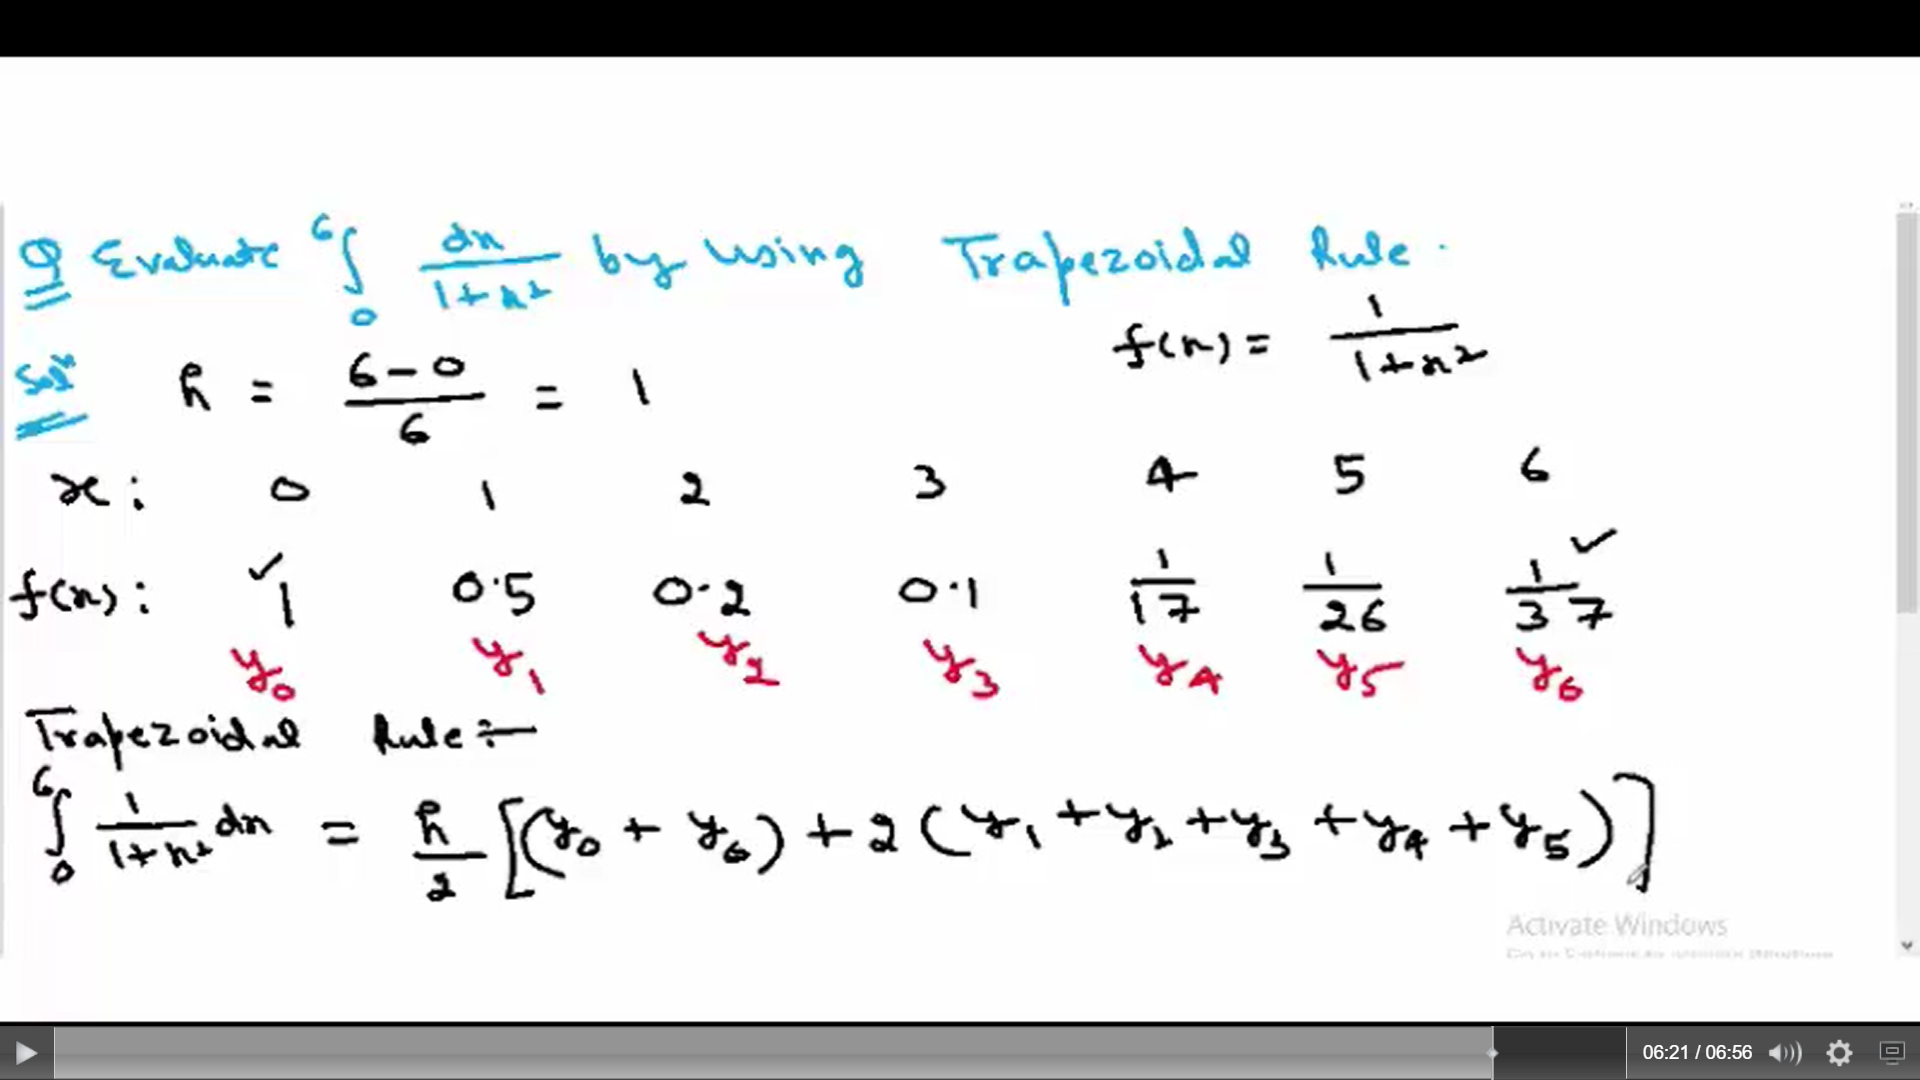 Q Evaluate ∫₀⁶ dx/(1+x²) by using Trapezoidal Rule.
Solⁿ h = (6-0)/6 = 1 f(x) = 1/(1+x²)
x: 0 1 2 3 4 5 6
f(x): ✓1 0.5 0.2 0.1 1/17 1/26 1/37 ✓
y₀ y₁ y₂ y₃ y₄ y₅ y₆
Trapezoidal Rule:-
∫₀⁶ 1/(1+x²) dx = h/2 [(y₀ + y₆) + 2(y₁ + y₂ + y₃ + y₄ + y₅)]
Activate Windows
06:21 / 06:56